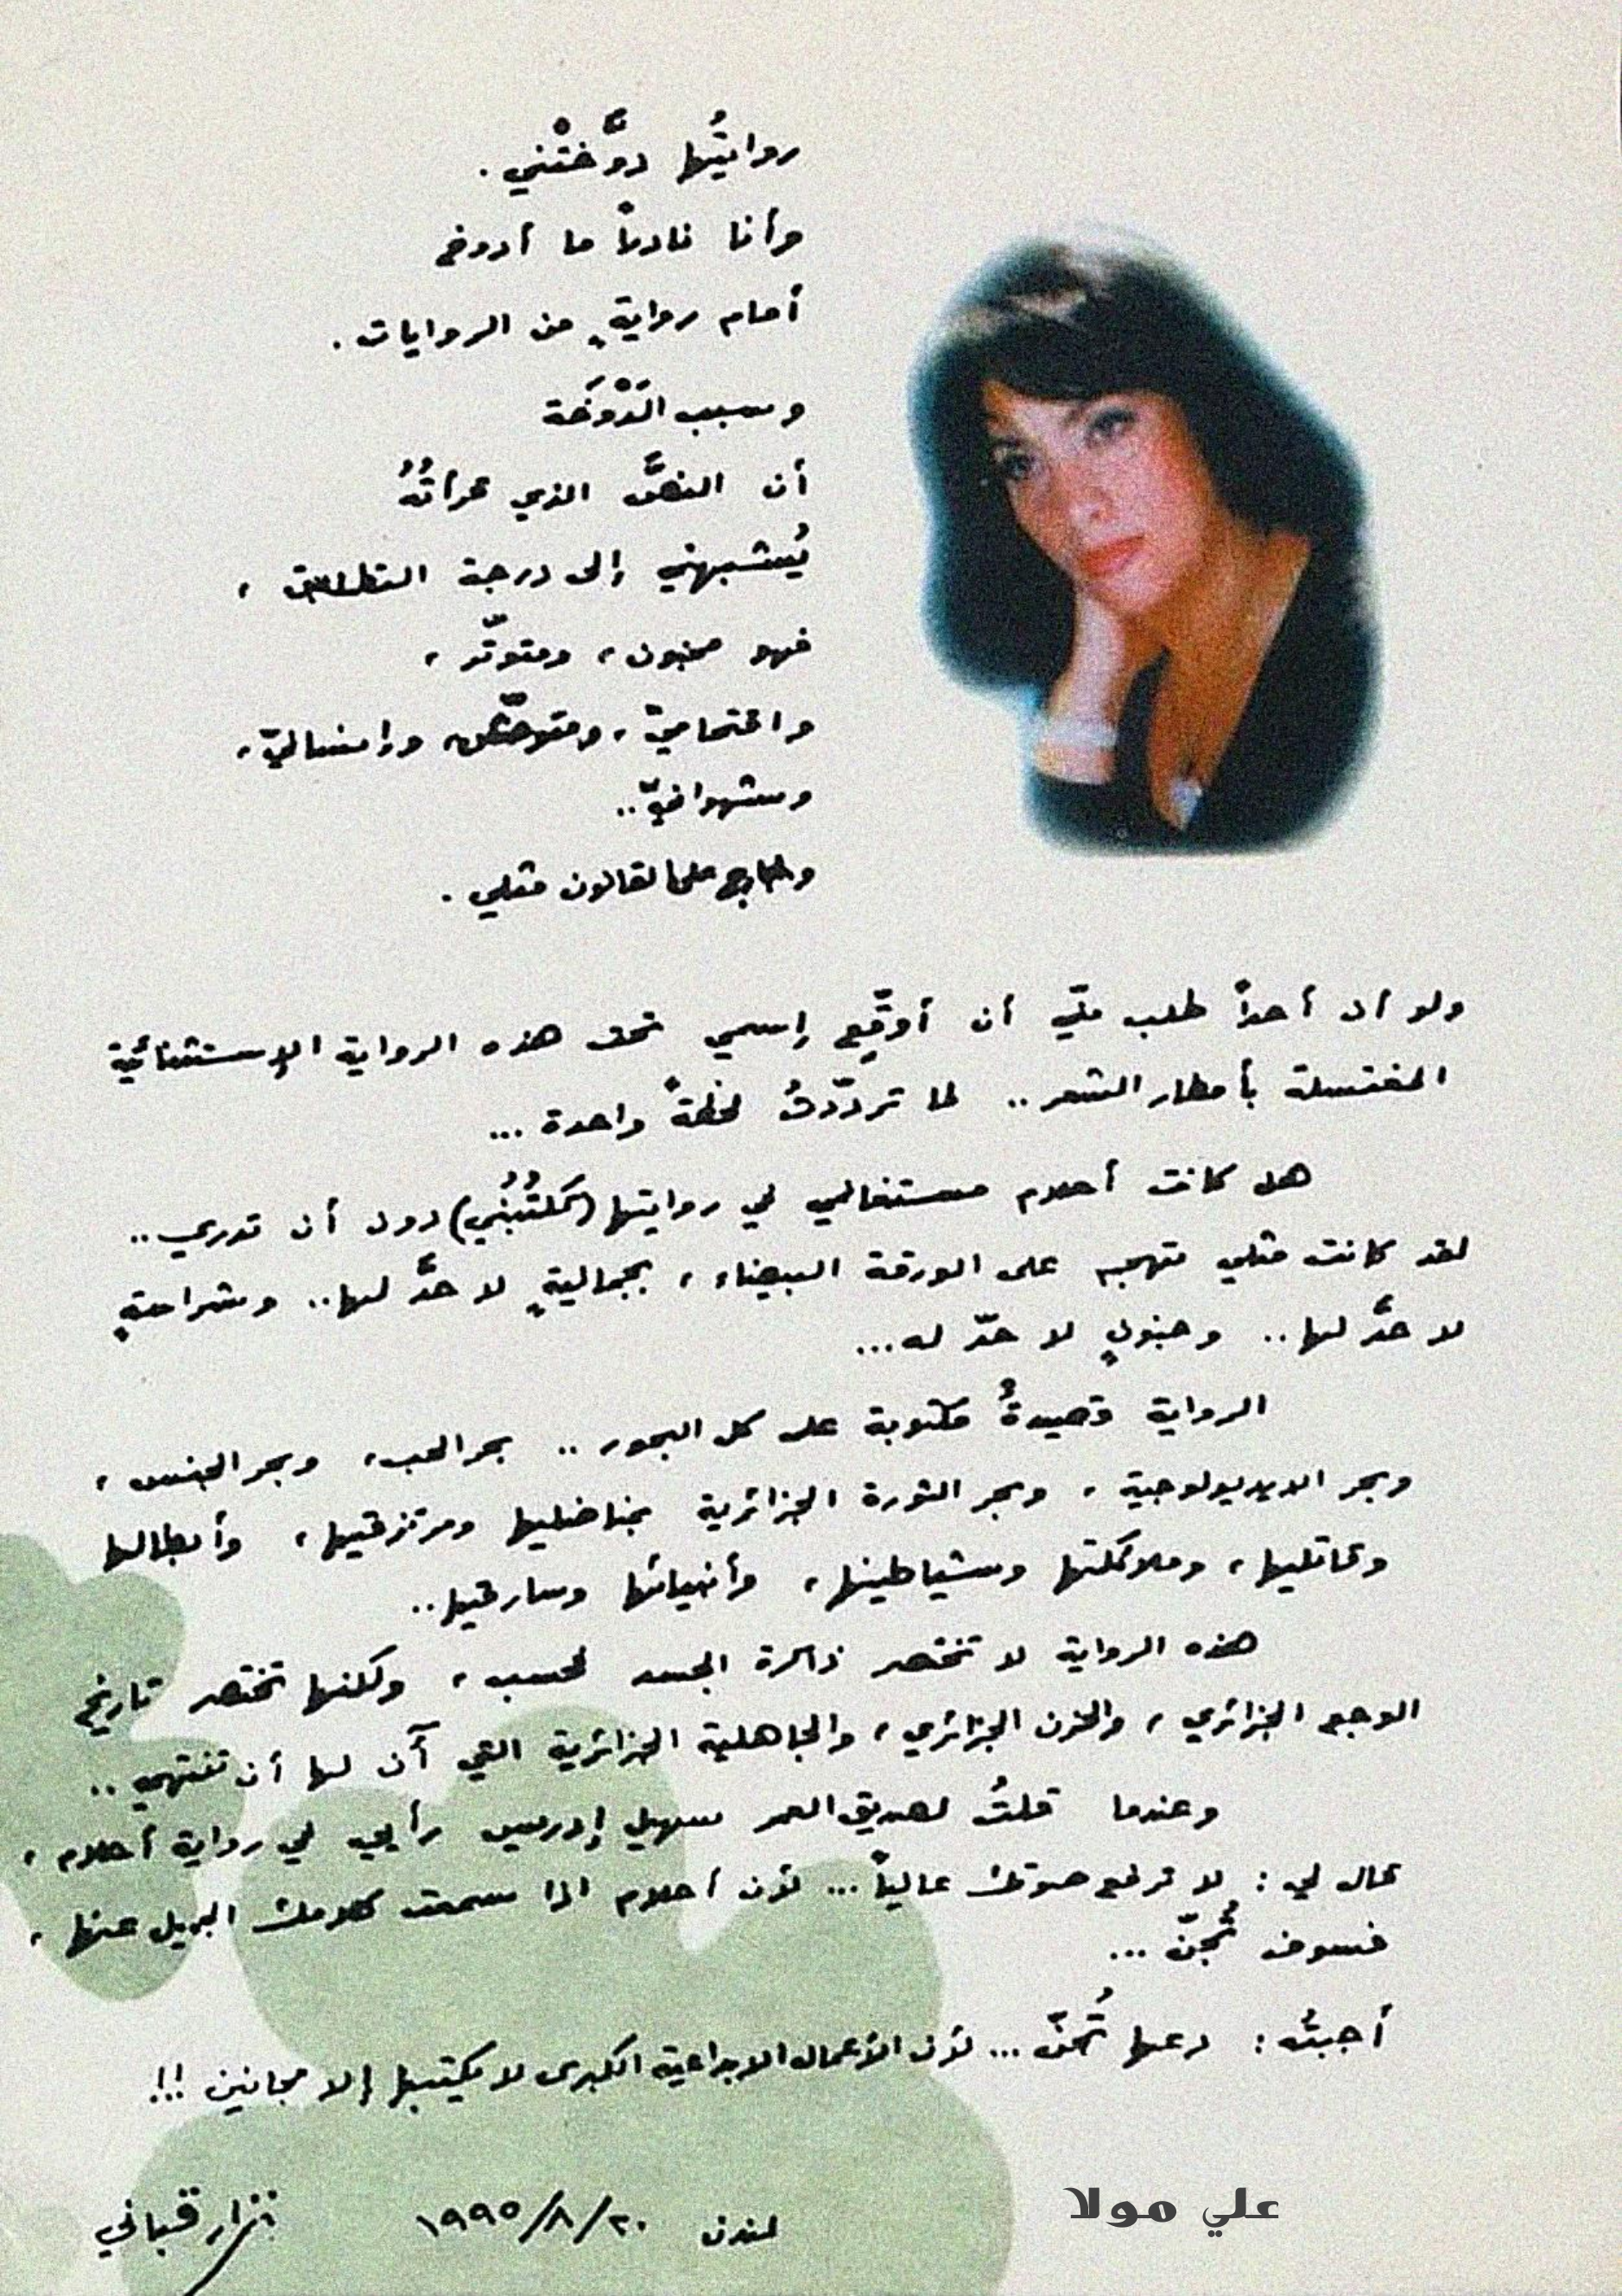 روايتُها دوَّختْني .
وأنا نادراً ما أدوخ
أمام روايةٍ من الروايات .
وسبب الدَوْخَة
أن النصَّ الذي قرأتُهُ
يُشبهني إلى درجة التطابق ،
فهو مجنون ، ومتوتّر ،
واقتحاميّ ، ومتوحّش ، وإنسانيّ ،
وشهوانيّ ..
وخارج على القانون مثلي .
ولو أن أحداً طلب منّي أن أوقّع إسمي تحت هذه الرواية الإستثنائية
المغتسلة بأمطار الشعر .. لما تردّدتُ لحظةً واحدة ...
هل كانت أحلام مستغانمي في روايتها (تَكتُبُني) دون أن تدري ..
لقد كانت مثلي تهجم على الورقة البيضاء ، بجماليةٍ لا حدَّ لها .. وشراسةٍ
لا حدَّ لها .. وجنونٍ لا حدّ له ...
الرواية قصيدةُ مكتوبة على كل البحور .. بحر الحب ، وبحر الجنس ،
وبحر الايديولوجية ، وبحر الثورة الجزائرية بمناضليها ومرتزقيها ، وأبطالها
وقاتليها ، وملائكتها وشياطينها ، وأنبيائها وسارقيها ..
هذه الرواية لا تختصر ذاكرة الجسد فحسب ، ولكنها تختصر تاريخ
الوجع الجزائري ، والحزن الجزائري ، والجاهلية الجزائرية التي آن لها أن تنتهي ..
وعندما قلتُ لصديق العمر سهيل إدريس رأيي في رواية أحلام ،
قال لي : لا ترفع صوتك عالياً ... لأن أحلام اذا سمعت كلامك الجميل عنها ،
فسوف تُجنّ ...
أجبتُه : دعها تُجَنّ ... لأن الأعمال الابداعية الكبرى لا يكتبها إلا مجانين !!!
لندن ٢٠/٨/١٩٩٥ نزار قباني
علي مولا